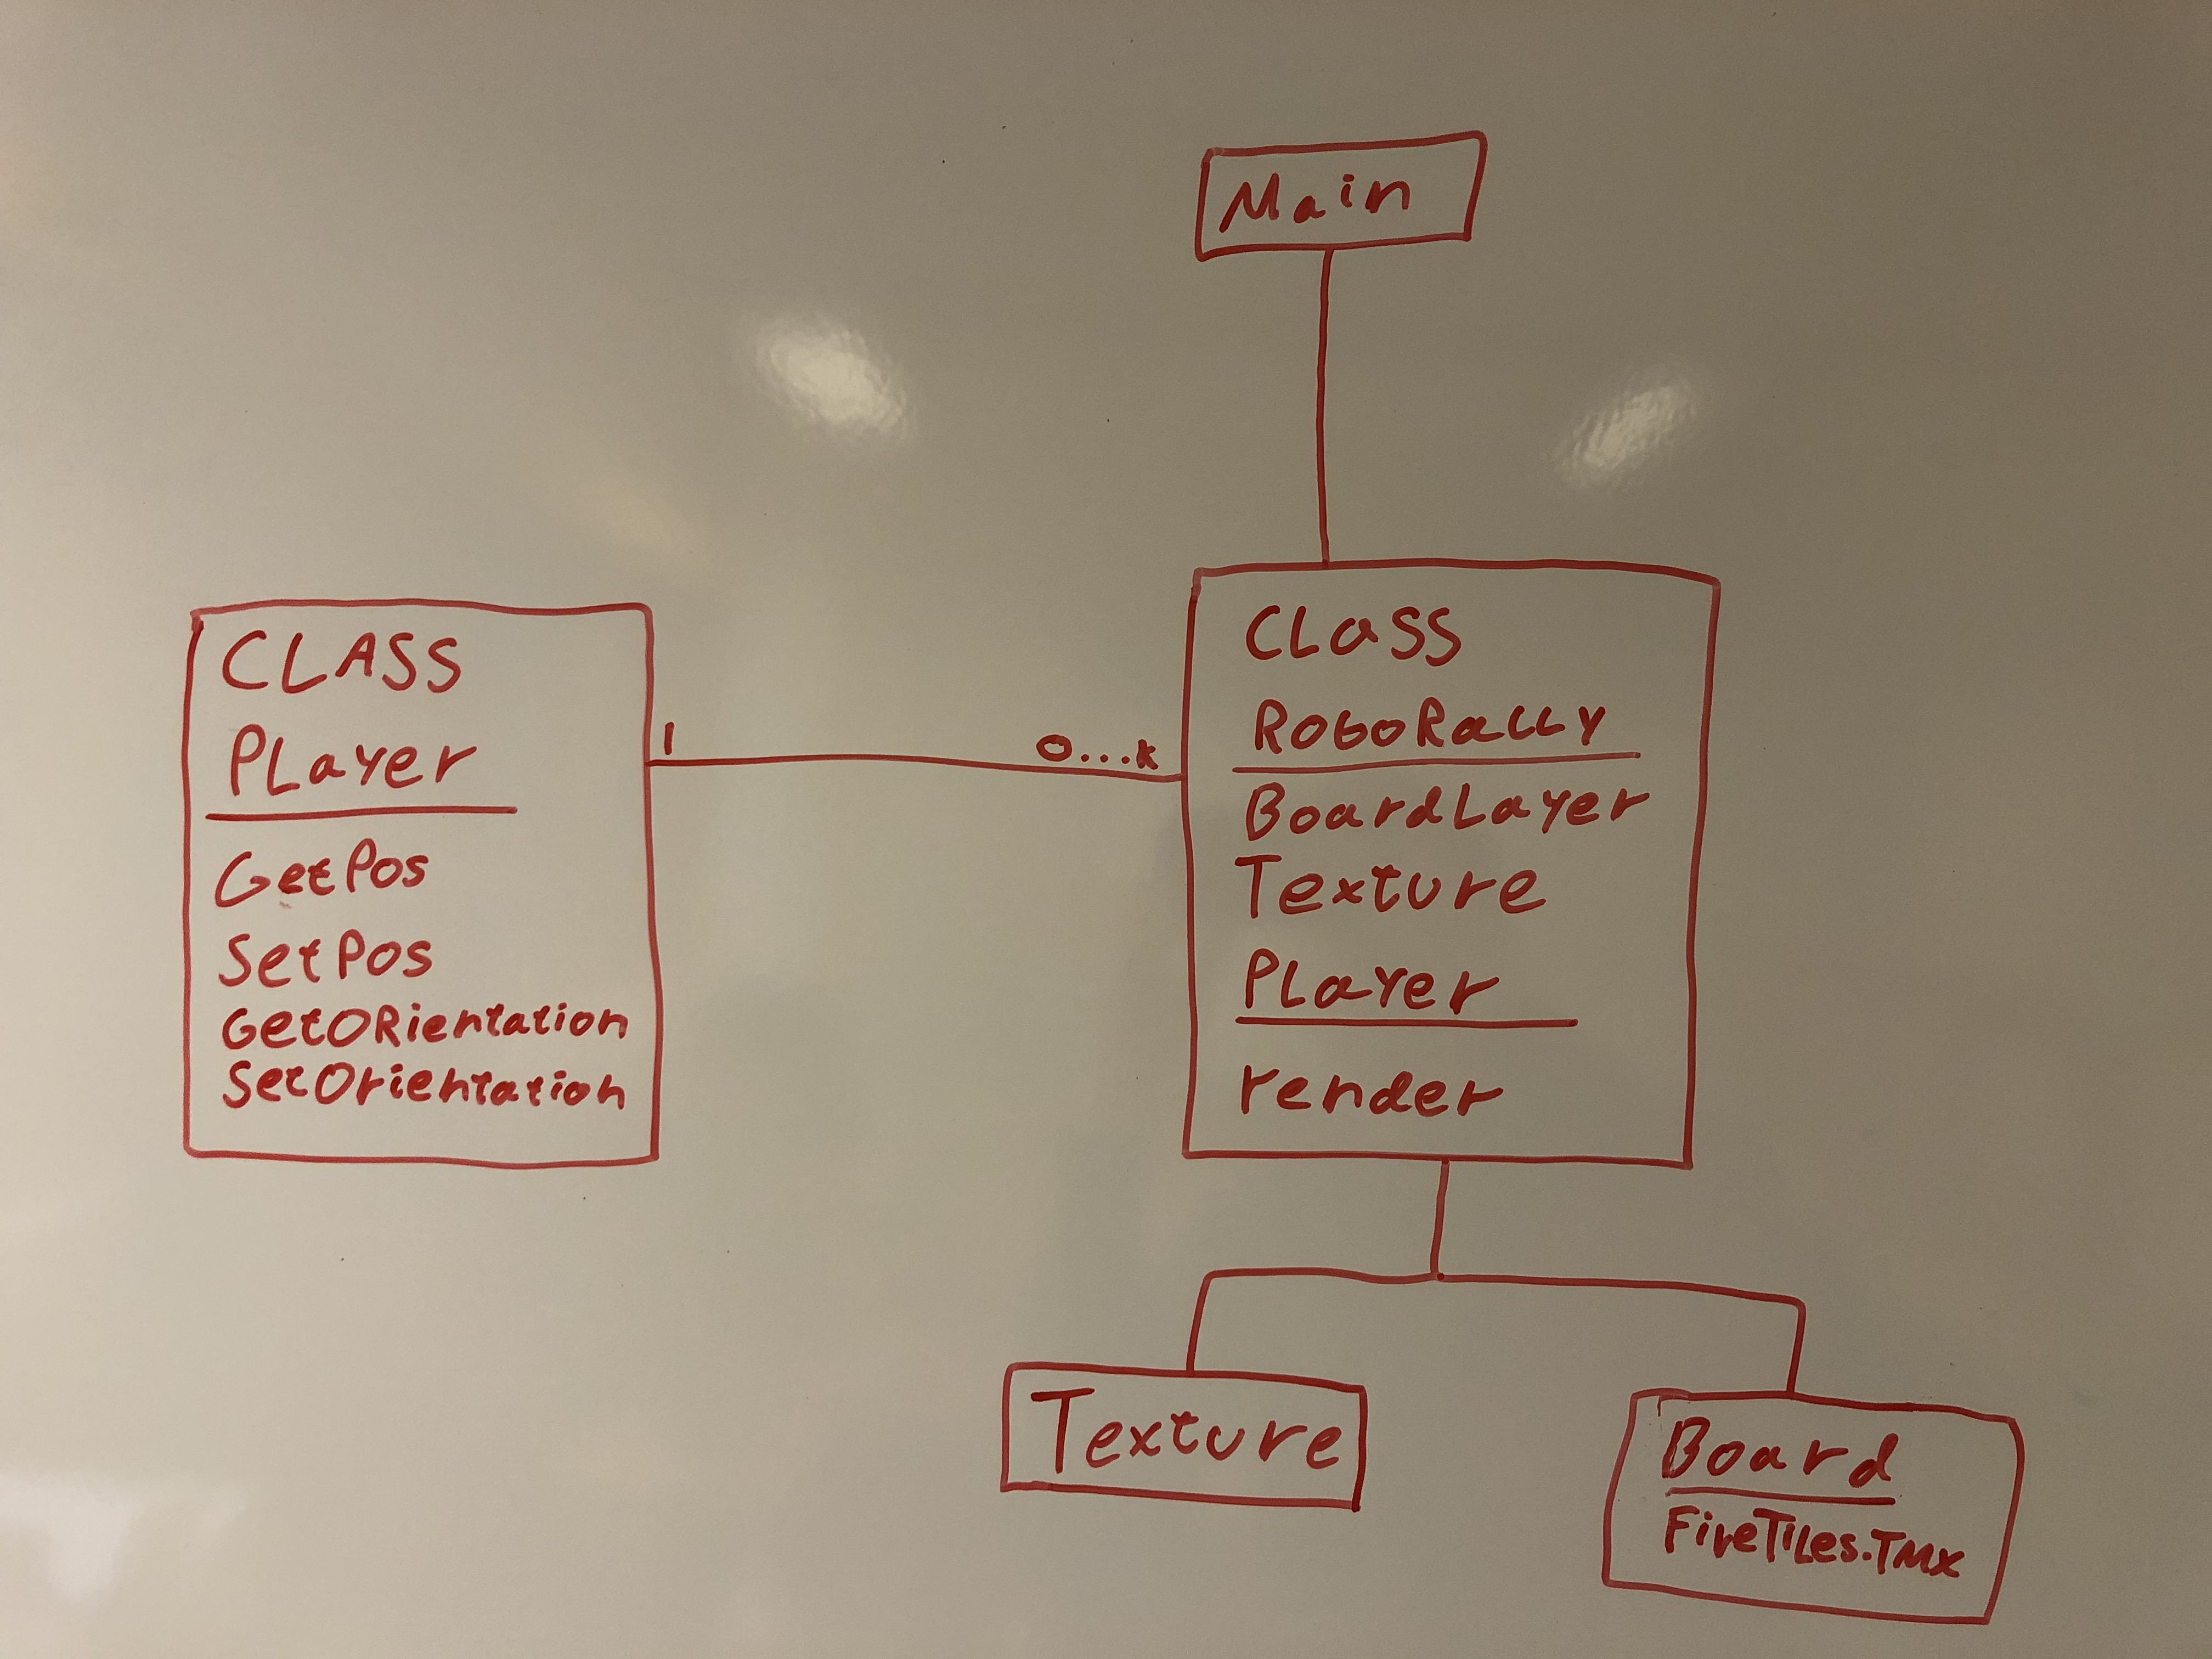 Main
CLASS
PLayer
GetPos
SetPos
GetORientation
SetOrientation
1
0...k
CLaSS
RoboRaLLy
BoardLayer
Texture
PLayer
render
Texture
Board
FiveTiLes.TMX